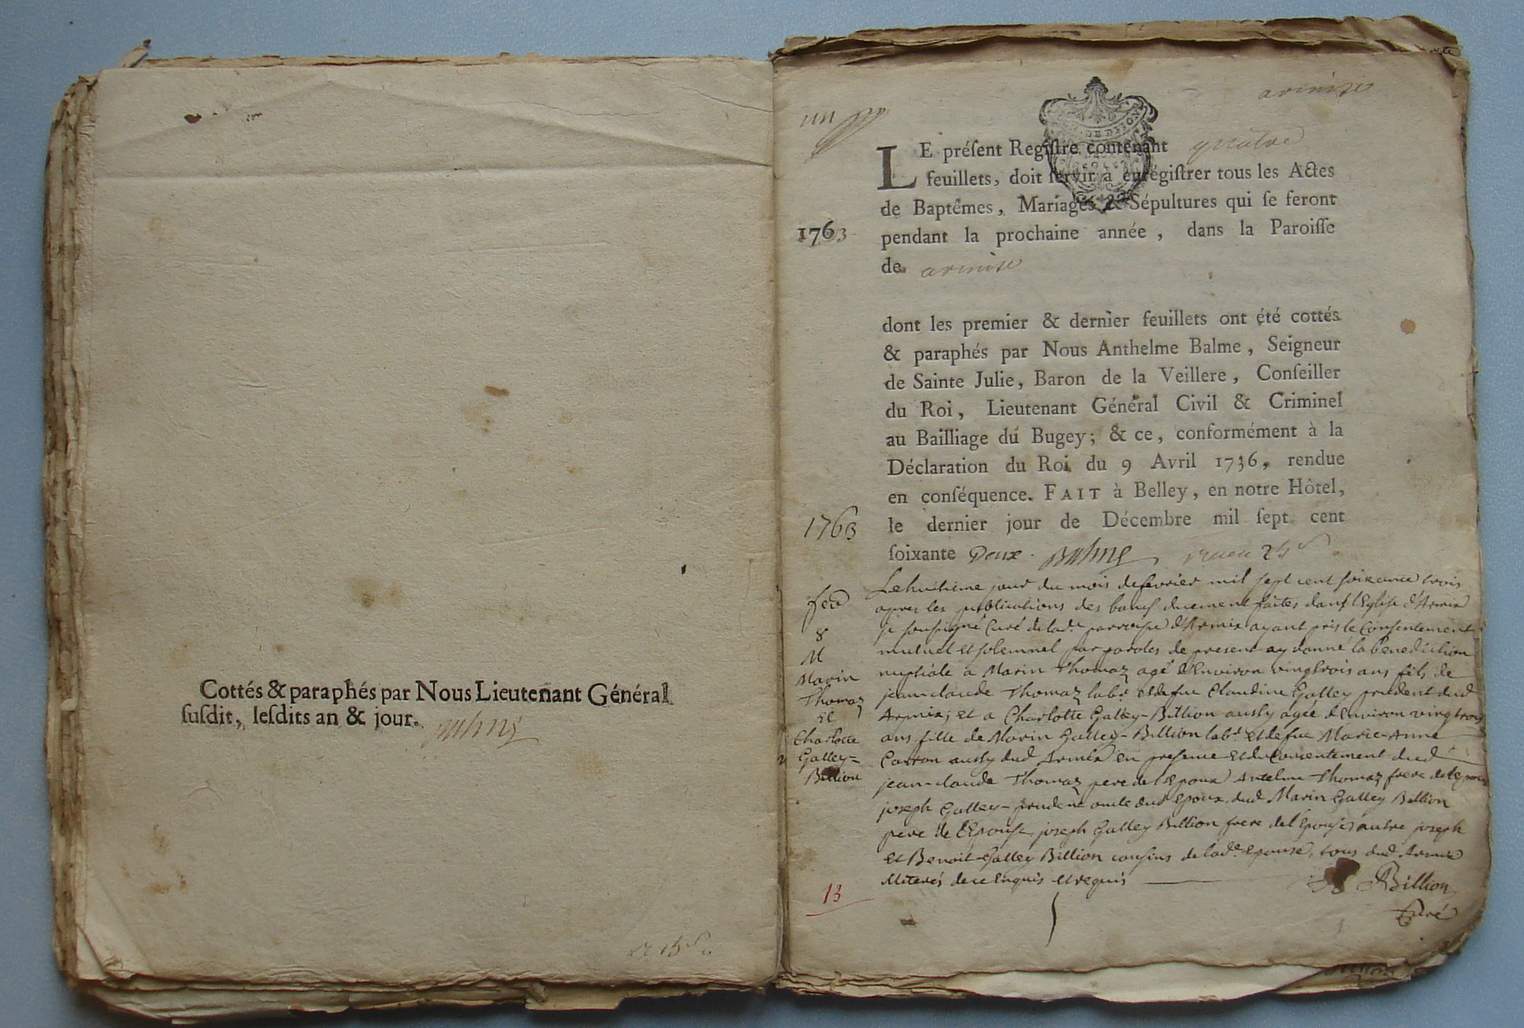 Cottés & paraphés par Nous Lieutenant Général
susdit, lesdits an & jour. Balme
un
armix
LE présent Registre contenant quatre
feuillets, doit servir à enrégistrer tous les Actes
de Baptêmes, Mariages & Sépultures qui se feront
1763
pendant la prochaine année, dans la Paroisse
de armix
dont les premier & dernier feuillets ont été cottés
& paraphés par Nous Anthelme Balme, Seigneur
de Sainte Julie, Baron de la Veillere, Conseiller
du Roi, Lieutenant Général Civil & Criminel
au Bailliage du Bugey; & ce, conformément à la
Déclaration du Roi du 9 Avril 1736, rendue
en conséquence. FAIT à Belley, en notre Hôtel,
1763
le dernier jour de Décembre mil sept cent
soixante Deux. Balme
Le huitieme jour du mois de fevrier mil sept cent soixante trois
apres les publications des bancs duement faites dans l'Eglise d'Armix
je soussigné Curé de lad.e parroisse d'Armix ayant pris le Consentement
mutuel et solemnel par paroles de present ay donné la benediction
nuptiale a Marin Thomaz agé d'Environ vingtrois ans fils de
jean-claude Thomaz lab.r et de fue Claudine Galley prudent dud
Armix; et a Charlotte Galley-Billion aussy agée d'environ vingtrois
ans fille de Marin Galley-Billion lab.r et de fue Marie-Anne
Carron aussy dud Armix en presence et du Consentement dud
jean-claude Thomaz pere de l'Epoux Antelme Thomaz frere de l'Epoux
joseph Galley-prudent oncle dud Epoux, dud Marin Galley Billion
pere de l'Epouse, joseph Galley Billion frere de l'Epouse, autre joseph
et Benoit Galley Billion cousins de lad.e epouse, tous dud Armix
illiterés de ce Enquis et requis
Billion
Curé
8
M
Marin
Thomaz
et
Charlotte
Galley=
Billion
13